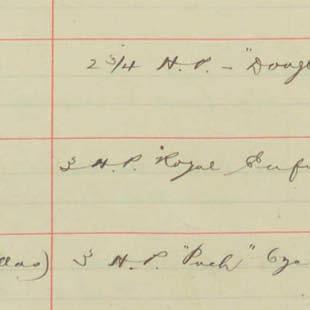 2 3/4 H.P. - "Dougl
3 H.P. "Royal Enfi
llas) 3 H.P. "Puch" Cyc